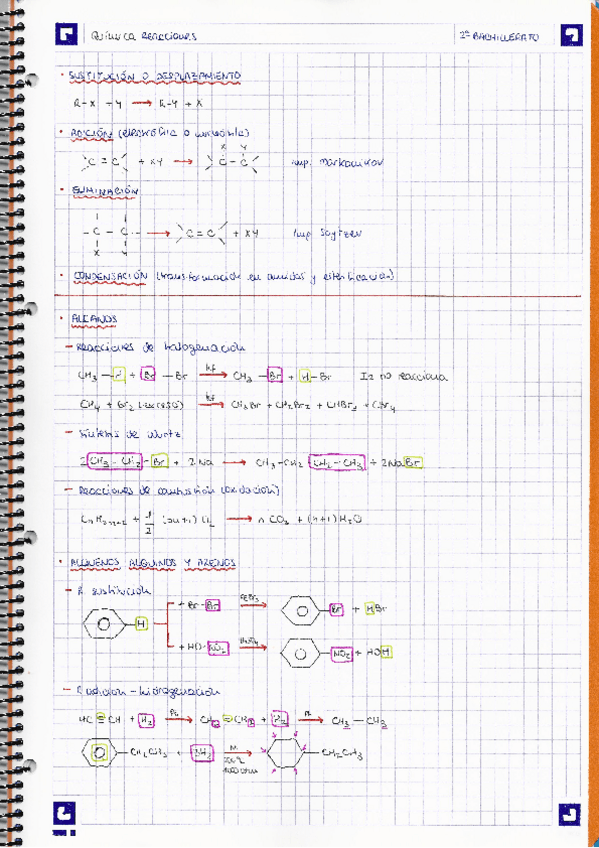 Química Reacciones 2º BACHILLERATO
· SUSTITUCIÓN O DESPLAZAMIENTO
R-X + Y → R-Y + X
· ADICIÓN (electrófila o nucleófila)
C = C + XY → X Y C - C imp. Markovnikov
· ELIMINACIÓN
- C - C - X Y → C = C + XY imp. Saytzev
· CONDENSACIÓN (transformación en amidas y esterificación)
· ALCANOS
- Reacciones de halogenación
CH3 - H + Br - Br → CH3 - Br + H - Br I2 no reacciona
CH4 + Br2 (exceso) → CH3Br + CH2Br2 + CHBr3 + CBr4
- Síntesis de Wurtz
2 CH3 - CH2 - Br + 2Na → CH3-CH2-CH2-CH3 + 2NaBr
- Reacciones de combustión (oxidación)
CnH2n+2 + 1/2 (3n+1) O2 → n CO2 + (n+1) H2O
· ALQUENOS, ALQUINOS Y ARENOS
- R. sustitución
H + Br-Br FeBr3 → Br + HBr
+ HO-NO2 H2SO4 → NO2 + HOH
- R. adición - hidrogenación
HC ≡ CH + H2 Pt → CH2 = CH2 + H2 Pt → CH3 - CH3
CH2CH3 + 3H2 → CH2CH3